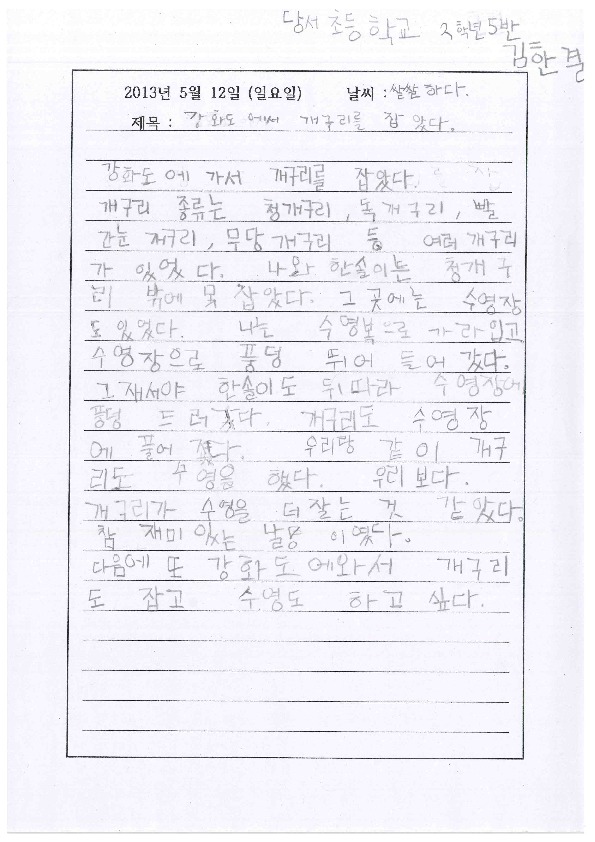 당서 초등학교 2학년 5반
김한결
2013년 5월 12일 (일요일) 날씨 : 쌀쌀하다.
제목 : 강화도에서 개구리를 잡았다.
강화도에 가서 개구리를 잡았다.
개구리 종류는 청개구리, 독개구리, 빨
간눈 개구리, 무당개구리 등 여러 개구리
가 있었다. 나와 한솔이는 청개구
리 밖에 못 잡았다. 그 곳에는 수영장
도 있었다. 나는 수영복으로 가라입고
수영장으로 풍덩 뛰어 들어 갔다.
그재서야 한솔이도 뒤따라 수영장에
풍덩 드러갔다. 개구리도 수영장
에 풀어 줬다. 우리랑 같이 개구
리도 수영을 했다. 우리 보다.
개구리가 수영을 더 잘는 것 같았다.
참 재미있는 날 이였다.
다음에 또 강화도에와서 개구리
도 잡고 수영도 하고 싶다.